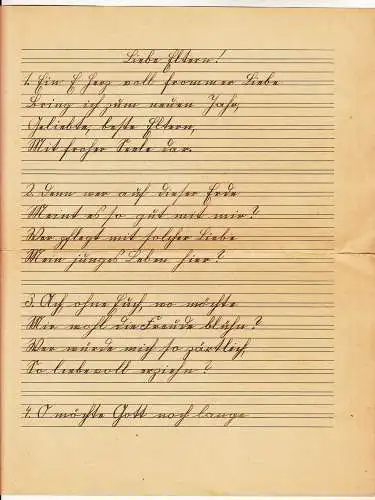 Liebe Eltern!
1. Ein E Herz voll frommer Liebe
Bring ich zum neuen Jahr,
Geliebte, beste Eltern,
Mit froher Seele dar.
2. Denn wer auf dieser Erde
Meint es so gut mit mir?
Wer pflegt mit solcher Liebe
Mein junges Leben hier?
3. Ach, ohne Euch, wo möchte
Mir wohl die Freude blühn?
Wer würde mich so zärtlich,
So liebevoll erziehn?
4. O möchte Gott noch lange